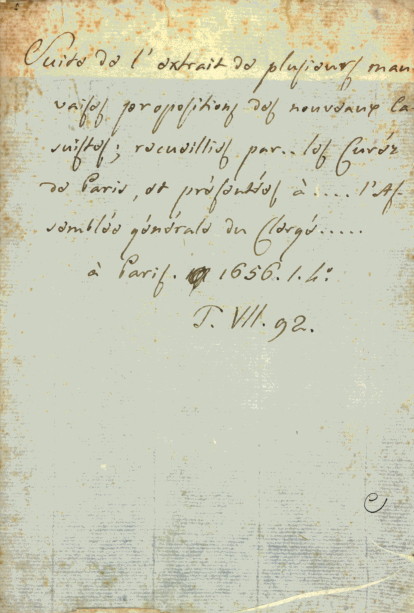 Suite de l'extrait de plusieurs mau
vaises propositions des nouveaux Ca
suistes; recueillies par.. les Curéz
de Paris, et présentées à .... l'As
semblée générale du Clergé.....
à Paris. 1656. 1. 4°.
T. VII. 92.